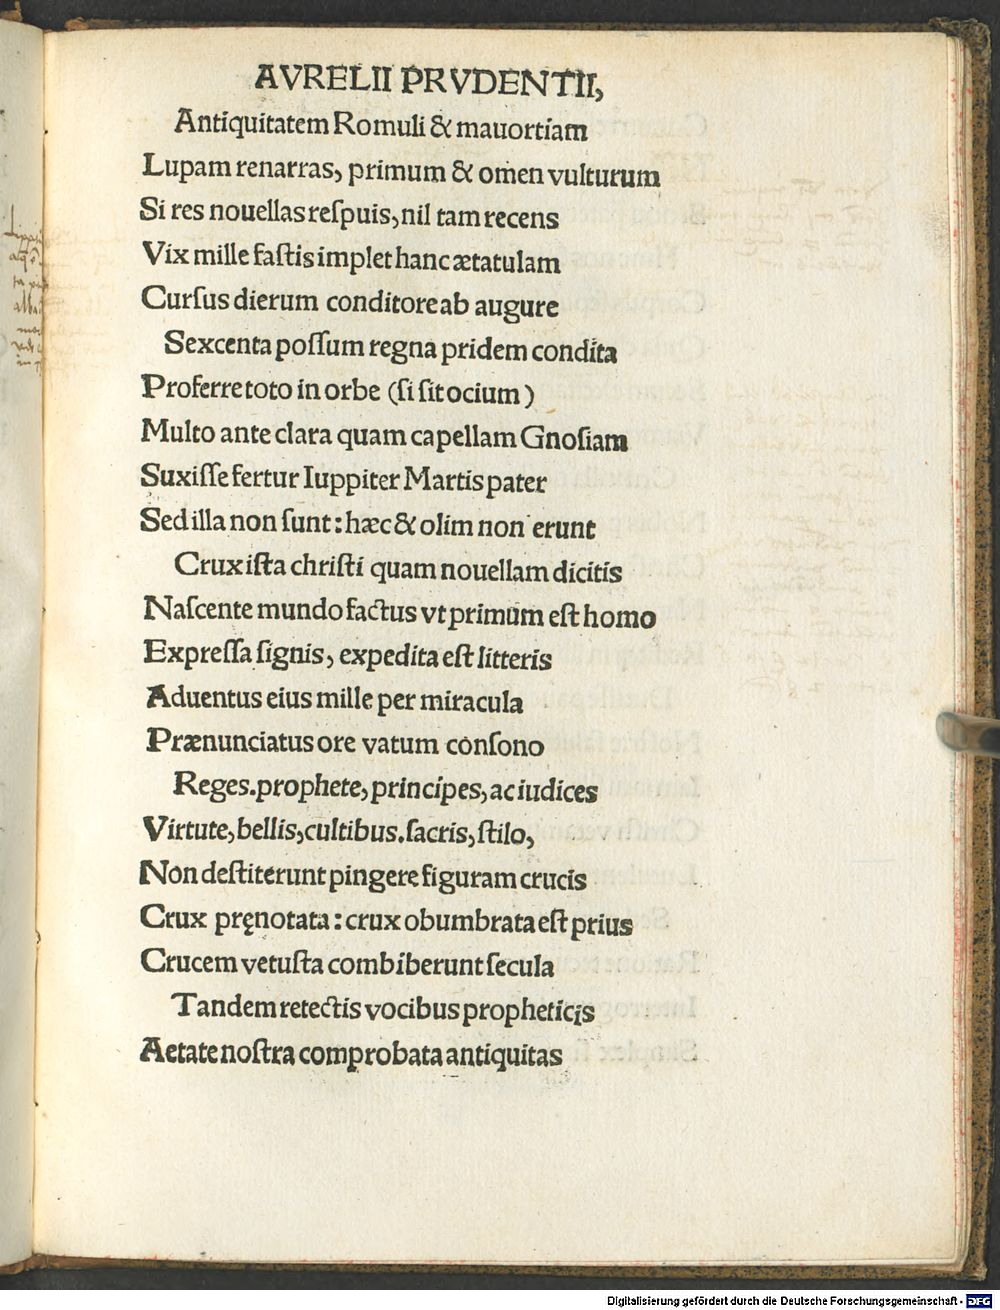 AVRELII PRVDENTII,
Antiquitatem Romuli & mauortiam
Lupam renarras, primum & omen vulturum
Si res nouellas reſpuis, nil tam recens
Vix mille faſtis implet hanc ætatulam
Curſus dierum conditore ab augure
Sexcenta poſſum regna pridem condita
Proferre toto in orbe (ſi ſit ocium)
Multo ante clara quam capellam Gnoſiam
Suxiſſe fertur Iuppiter Martis pater
Sed illa non ſunt: hæc & olim non erunt
Crux iſta chriſti quam nouellam dicitis
Naſcente mundo factus vt primum eſt homo
Expreſſa ſignis, expedita eſt litteris
Aduentus eius mille per miracula
Prænunciatus ore vatum conſono
Reges. prophete, principes, ac iudices
Virtute, bellis, cultibus. ſacris, ſtilo,
Non deſtiterunt pingere figuram crucis
Crux pręnotata: crux obumbrata eſt prius
Crucem vetuſta combiberunt ſecula
Tandem retectis vocibus propheticis
Aetate noſtra comprobata antiquitas
Digitalisierung gefördert durch die Deutsche Forschungsgemeinschaft - DFG